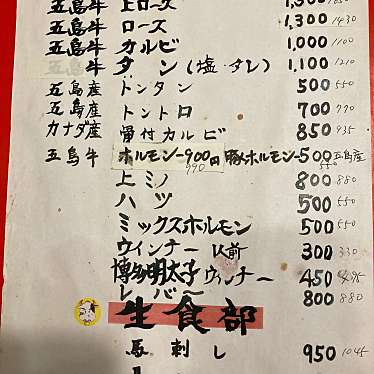 五島牛 上ロース 1,500 1650
五島牛 ロース 1,300 1430
五島牛 カルビ 1,000 1100
五島牛 タン(塩・タレ) 1,100 1210
五島産 トンタン 500 550
五島産 トントロ 700 770
カナダ産 骨付カルビ 850 935
五島牛 ホルモン-900円 豚ホルモン-500 五島産
990 550
上ミノ 800 880
ハツ 500 550
ミックスホルモン 500 550
ウィンナー 300 330
博多明太子ウィンナー 450 495
レバー 800 880
生食部
馬刺し 950 1045